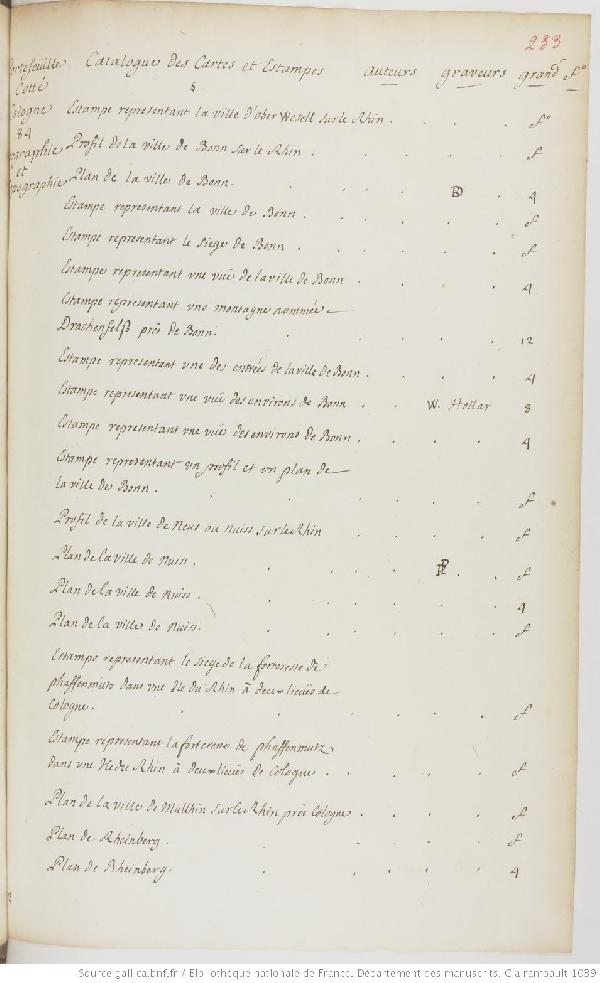 233
Portefeuille Catalogue des Cartes et Estampes auteurs graveurs grand.r f.o
Cotté
Cologne
84
Topographie
et
Topographie
Estampe representant la ville d'ober Wesell sur le Rhin . . . f.o
Profil de la ville de Bonn sur le Rhin . . . f
Plan de la ville de Bonn. . . . 4
Estampe representant la ville de Bonn . . . f
Estampe representant le siege de Bonn . . . f
Estampe representant vne vuë de la ville de Bonn . . . 4
Estampe representant vne montagne nommée
Drachenfelß près de Bonn. . . . 12
Estampe representant vne des entrées de la ville de Bonn . . . 4
Estampe representant vne vuë des environs de Bonn . . W. Hollar 8
Estampe representant vne vuë des environs de Bonn . . . 4
Estampe representant un profil et vn plan de
la ville de Bonn . . . . f
Profil de la ville de Neus ou Nuiss sur le Rhin . . . f
Plan de la ville de Nuiss . . . f
Plan de la ville de Nuiss . . . 4
Plan de la ville de Nuiss . . . f
Estampe representant le siege de la forteresse de
phaffenmutz dans vne Ile du Rhin à deux lieuës de
Cologne . . . . f
Estampe representant la forteresse de phaffenmutz
dans vne Ile du Rhin à deux lieuës de Cologne . . . f
Plan de la ville de Mullhin sur le Rhin près Cologne . . . f
Plan de Rheinberg . . . f
Plan de Rheinberg . . . 4
Source gallica.bnf.fr / Bibliothèque nationale de France. Département des manuscrits. Clairambault 1039